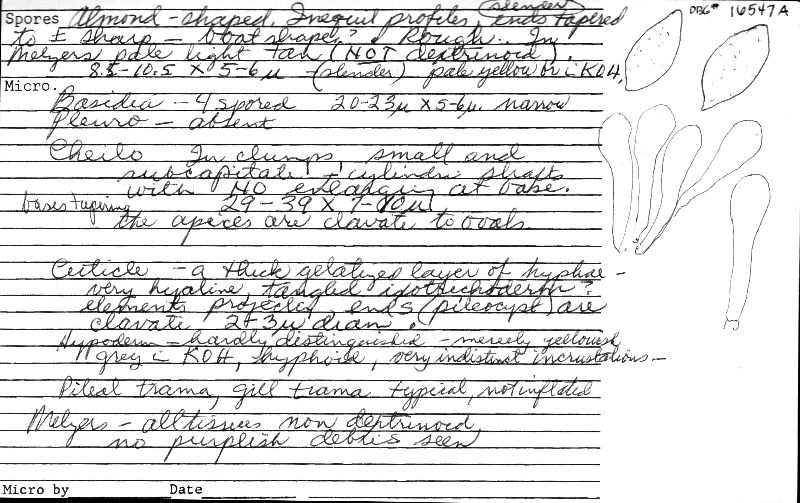 DBG# 16547A
slender
Spores Almond-shaped. Inequil profiles, ends tapered
to ± sharp - boat shape? Rough. In
Melzers pale light tan (NOT dextrinoid).
8.5-10.5 X 5-6µ (slender) pale yellow br c̄ KOH,
Micro.
Basidia - 4 spored 20-23µ X 5-6µ. narrow
Pleuro - absent
Cheilo In clumps, small and
subcapitate + cylindric shafts
with NO enlarging at base.
bases tapering 29-39 X 7-10µ
the apices are clavate to ovals.
Cuticle - a thick gelatized layer of hyphae -
very hyaline, tangled ixotrichoderm?
elements projectin, ends (pileocyst) are
clavate 2+3µ diam.
Hypoderm - hardly distinguished - merely yellowish
grey c̄ KOH, hyphoid, very indistinct incrustations -
Pileal trama, gill trama typical, not inflated
Melzers - all tissues non deptrinoid,
no purplish debris seen
Micro by Date